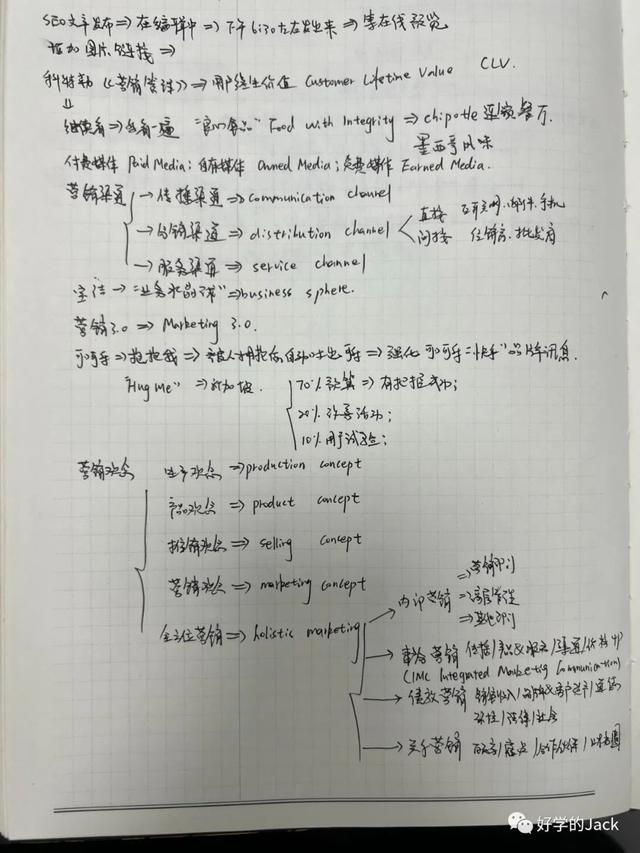 SEO文章发布 ⇒ 在编辑中 ⇒ 下午6:30左右发出来 ⇒ 掌在线预览
添加图片链接 ⇒
科特勒《营销管理》⇒ 用户终生价值 Customer Lifetime Value CLV.
⇓
继续看 ⇒ 再看一遍 "良心食品" Food with Integrity ⇒ chipotle 连锁餐厅.
墨西哥风味
付费媒体 Paid Media; 自有媒体 Owned Media; 免费媒体 Earned Media.
营销渠道 → 传播渠道 ⇒ communication channel
→ 分销渠道 ⇒ distribution channel 直接 互联网、邮件、手机
间接 经销商、批发商
→ 服务渠道 ⇒ service channel
宝洁 → "业务水晶球" ⇒ business sphere.
营销3.0 ⇒ Marketing 3.0.
可口可乐 ⇒ 抱抱我 ⇒ 拥抱后自动吐出可乐 ⇒ 强化可口可乐="快乐"品牌讯息.
"Hug me" ⇒ 新加坡. 70%预算 ⇒ 有把握成功;
20% 改善活动;
10% 用于试验;
营销观念 生产观念 ⇒ production concept
产品观念 ⇒ product concept
推销观念 ⇒ selling concept
营销观念 ⇒ marketing concept
全方位营销 ⇒ holistic marketing
→ 内部营销 ⇒ 营销部门
⇒ 高层管理
⇒ 其他部门
→ 整合营销 传播/产品&服务/渠道/价格
(IMC Integrated Marketing Communication)
→ 绩效营销 销售收入/品牌&客户资产/道德
环境/法律/社会
→ 关系营销 /合作伙伴/
好学的Jack